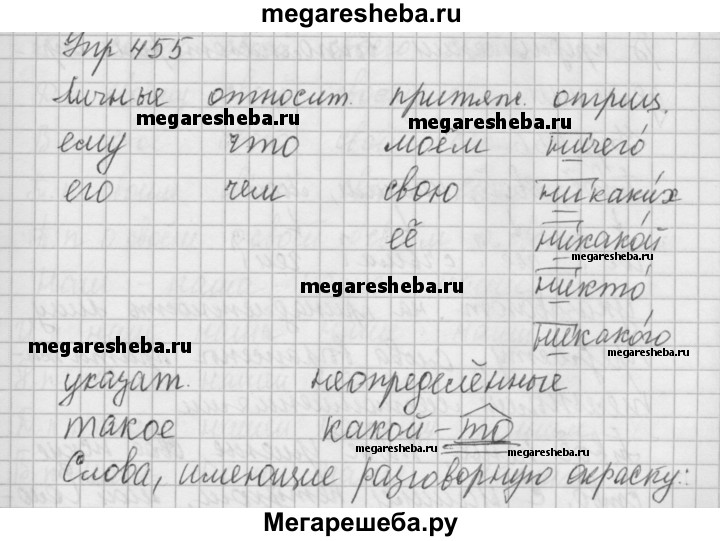 megaresheba.ru
Упр 455
Личные относит. притяж. отриц.
megaresheba.ru megaresheba.ru
ему что моём ничего́
его чем свою никаки́х
её никако́й
megaresheba.ru
megaresheba.ru никто́
никако́го
megaresheba.ru megaresheba.ru
указат. неопределённые
такое какой-то
megaresheba.ru megaresheba.ru
megaresheba.ru
Слова, имеющие разговорную окраску:
Мегарешеба.ру